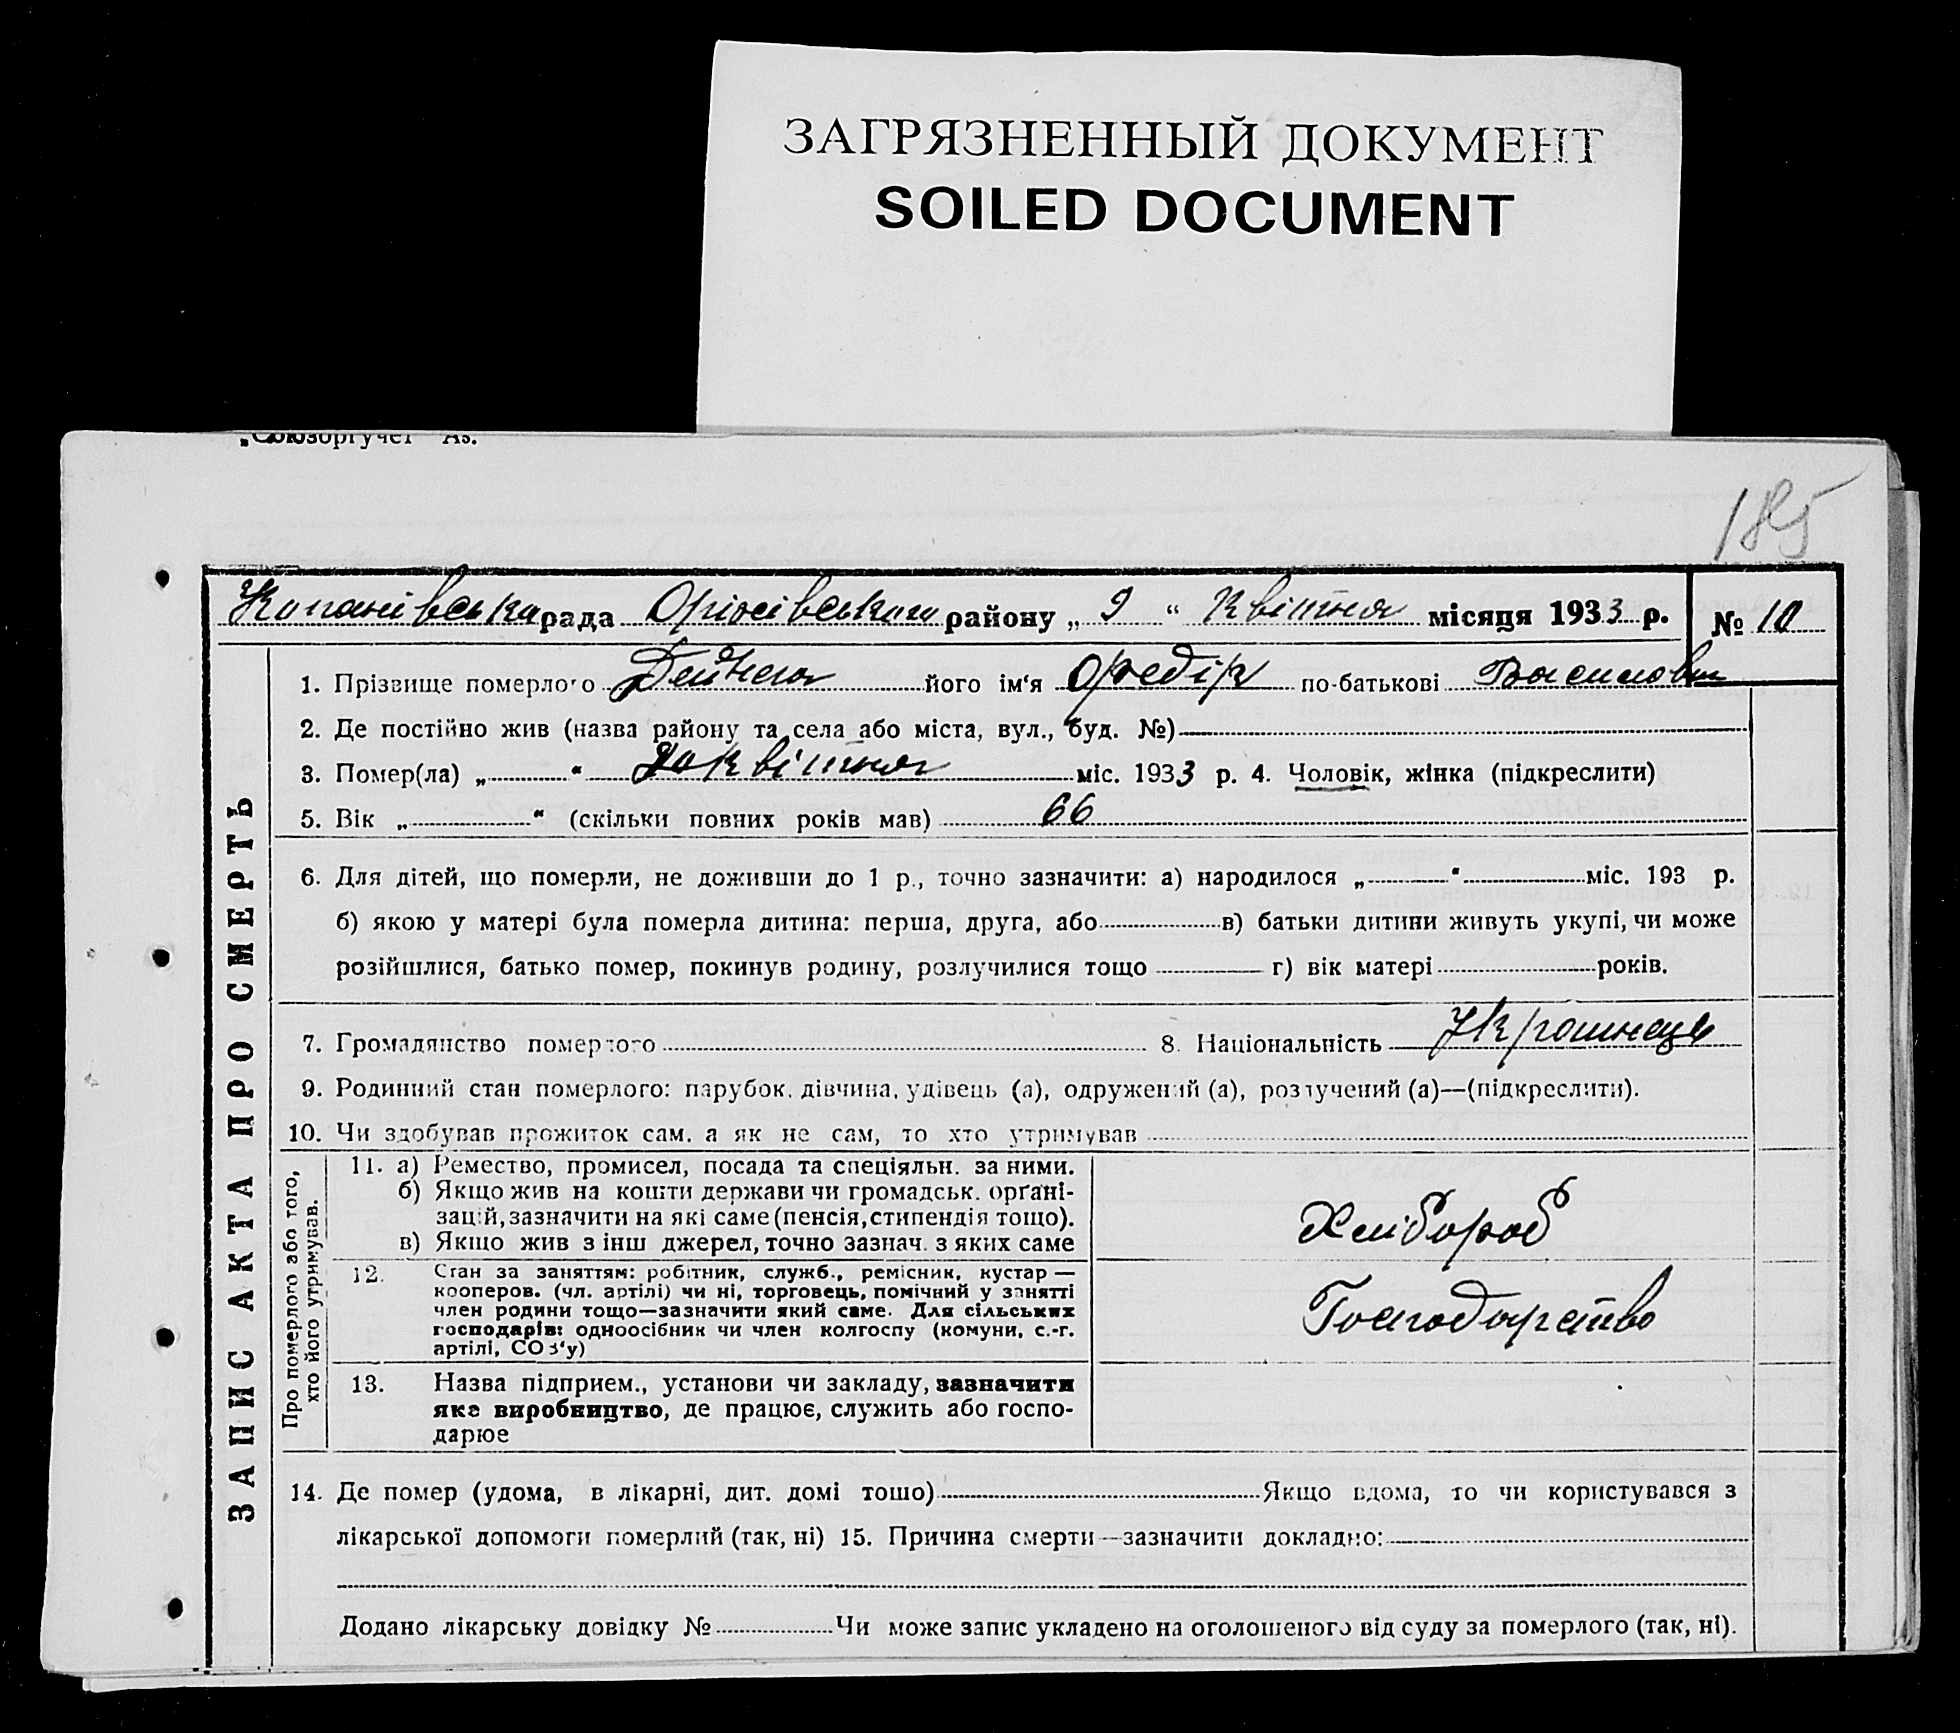 ЗАГРЯЗНЕННЫЙ ДОКУМЕНТ
SOILED DOCUMENT
„Союзоргучет"
185
Копанівська рада Оріхівського району „ 9 “ Квітня місяця 1933 р. № 10
ЗАПИС АКТА ПРО СМЕРТЬ
1. Прізвище померлого Дейнега його ім‘я Федір по-батькові Василович
2. Де постійно жив (назва району та села або міста, вул., буд. №)
3. Помер(ла) „ “ квітня міс. 1933 р. 4. Чоловік, жінка (підкреслити)
5. Вік „ “ (скільки повних років мав) 66
6. Для дітей, що померли, не доживши до 1 р., точно зазначити: а) народилося „ “ міс. 193 р.
б) якою у матері була померла дитина: перша, друга, або в) батьки дитини живуть укупі, чи може
розійшлися, батько помер, покинув родину, розлучилися тощо г) вік матері років.
7. Громадянство померлого 8. Національність Українець
9. Родинний стан померлого: парубок, дівчина, удівець (а), одружений (а), розлучений (а)—(підкреслити).
10. Чи здобував прожиток сам, а як не сам, то хто утримував
Про померлого або того,
хто його утримував.
11. а) Ремество, промисел, посада та спеціяльн. за ними.
б) Якщо жив на кошти держави чи громадськ. орґані-
зацій, зазначити на які саме (пенсія, стипендія тощо).
в) Якщо жив з інш джерел, точно зазнач. з яких саме
Хлібороб
12. Стан за заняттям: робітник, служб., ремісник, кустар —
кооперов. (чл. артілі) чи ні, торговець, помічний у занятті
член родини тощо—зазначити який саме. Для сільських
господарів: одноосібник чи член колгоспу (комуни, с.-г.
артілі, СОЗ‘у)
Господарство
13. Назва підприєм., установи чи закладу, зазначити
яке виробництво, де працює, служить або госпо-
дарює
14. Де помер (удома, в лікарні, дит. домі тощо) Якщо вдома, то чи користувався з
лікарської допомоги померлий (так, ні) 15. Причина смерти—зазначити докладно:
Додано лікарську довідку № Чи може запис укладено на оголошеного від суду за померлого (так, ні).